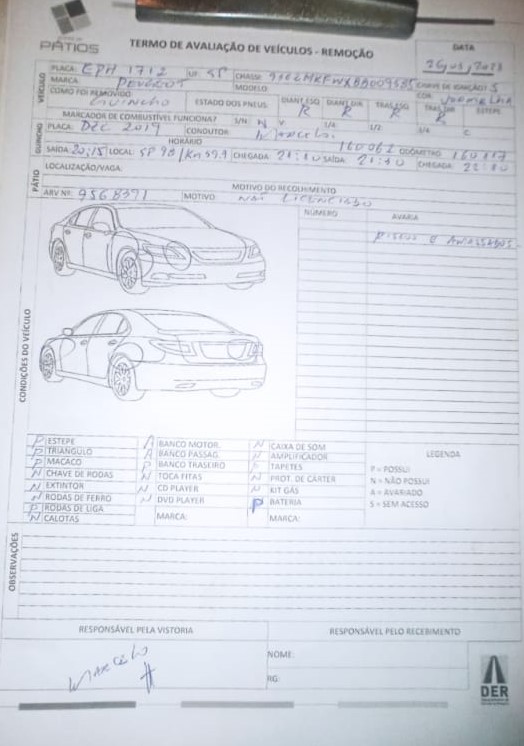 PÁTIOS
TERMO DE AVALIAÇÃO DE VEÍCULOS - REMOÇÃO
DATA
VEÍCULO
PLACA: EPH 1712 UF: SP CHASSI:
MARCA: PEUGEOT MODELO
COMO FOI REMOVIDO GUINCHO ESTADO DOS PNEUS: DIANT ESQ R DIANT DIR R TRAS ESQ R TRAS DIR R ESTEPE
COR Vermelha
MARCADOR DE COMBUSTÍVEL FUNCIONA? S/N: N V 1/4 1/2 3/4 C
GUINCHO
PLACA: DEC 2019 CONDUTOR: Marcelo
HORÁRIO 160062 ODÔMETRO 160117
SAÍDA: 20:15 LOCAL: SP 98/Km 59.9 CHEGADA: 21:10 SAÍDA: 21:30 CHEGADA: 22:10
PÁTIO
LOCALIZAÇÃO/VAGA:
MOTIVO DO RECOLHIMENTO
ARV Nº: 9568371 MOTIVO: NÃO LICENCIADO
CONDIÇÕES DO VEÍCULO
NÚMERO AVARIA
RISCOS E AMASSADOS
P ESTEPE A BANCO MOTOR. N CAIXA DE SOM
P TRIANGULO A BANCO PASSAG. N AMPLIFICADOR
P MACACO P BANCO TRASEIRO TAPETES
N CHAVE DE RODAS N TOCA FITAS N PROT. DE CÁRTER
N EXTINTOR N CD PLAYER N KIT GÁS
N RODAS DE FERRO N DVD PLAYER P BATERIA
P RODAS DE LIGA MARCA: MARCA:
N CALOTAS
LEGENDA
P = POSSUI
N = NÃO POSSUI
A = AVARIADO
S = SEM ACESSO
OBSERVAÇÕES
RESPONSÁVEL PELA VISTORIA RESPONSÁVEL PELO RECEBIMENTO
MARCELO
NOME:
RG:
DER